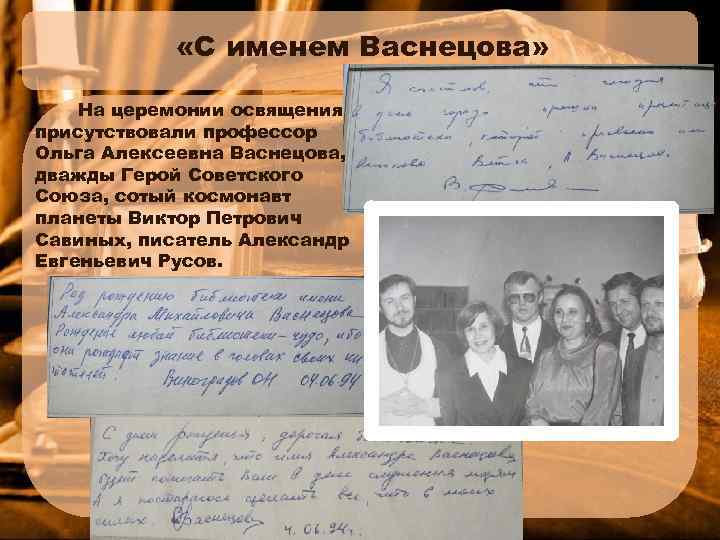 «С именем Васнецова»
На церемонии освящения
присутствовали профессор
Ольга Алексеевна Васнецова,
дважды Герой Советского
Союза, сотый космонавт
планеты Виктор Петрович
Савиных, писатель Александр
Евгеньевич Русов.
Я счастлив, что сегодня
в день города
библиотека, которой присвоено имя
Вятича, А. Васнецова.
Рад рождению библиотеки имени
Александра Михайловича Васнецова
Рождение любой библиотеки – чудо, ибо
они рождают знание в головах своих чи
тателей. Виноградов ОН 04.06.94
С днем рождения, дорогая
Хочу надеяться, что имя Александра Васнецова
будет помогать Вам в деле служения людям
А я постараюсь сделать все, что в моих
силах. Васнецова
4.06.94г.